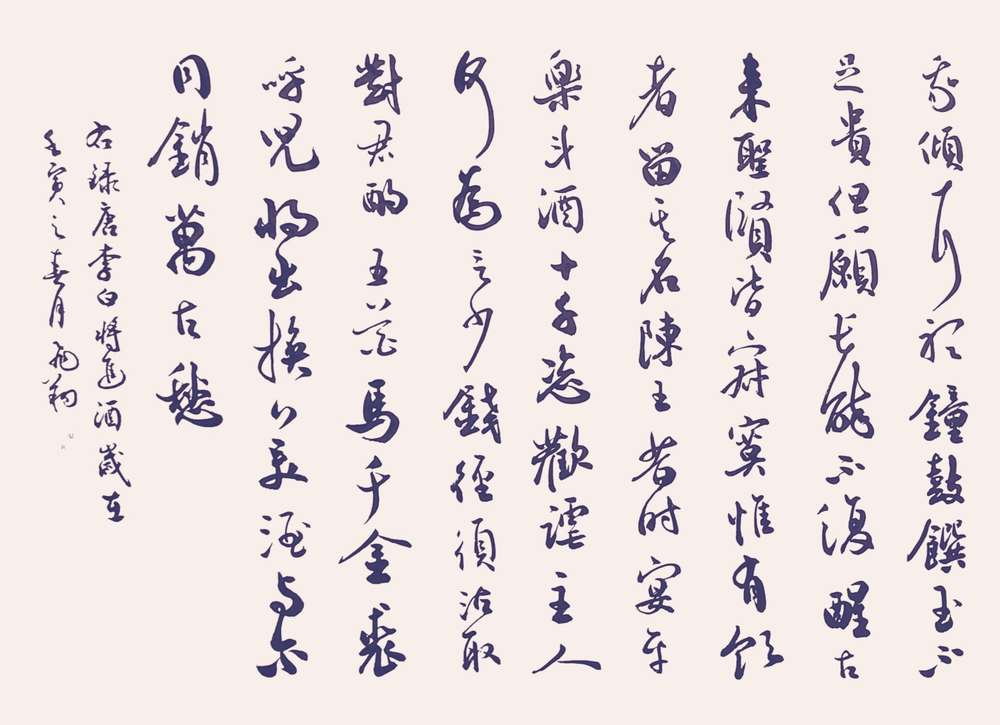 我傾耳聽鐘鼓饌玉不
足貴但願長醉不復醒古
來聖賢皆寂寞惟有飲
者留其名陳王昔時宴平
樂斗酒十千恣歡謔主人
何為言少錢徑須沽取
對君酌五花馬千金裘
呼兒將出換美酒与尔
同銷萬古愁
右録唐李白將進酒歲在
壬寅之春月飛翔